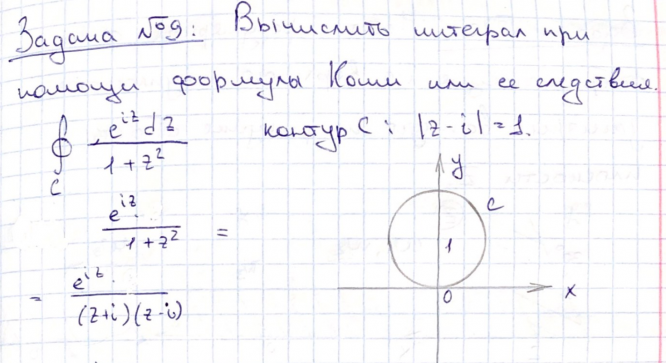 Задача №9: Вычислить интеграл при
помощи формулы Коши или ее следствия.
∮_C e^{iz} dz / (1 + z²) контур C: |z - i| = 1.
e^{iz} / (1 + z²) =
= e^{iz} / ((z+i)(z-i))
y
C
1
0
x